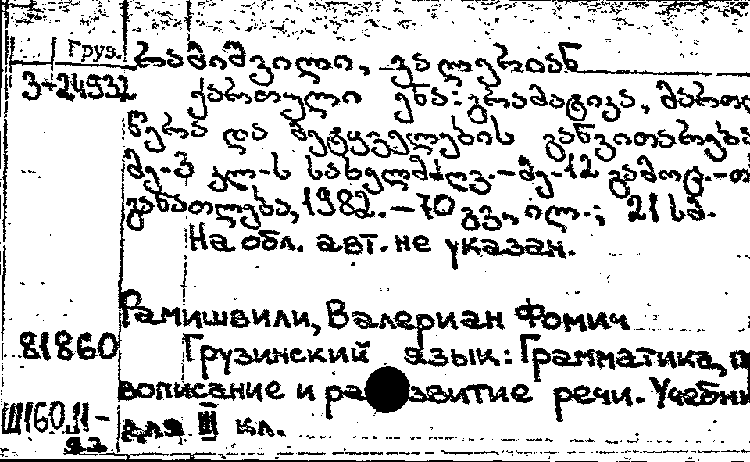 Груз.
რამიშვილი, ვალერიან
3-24932
ქართული ენა: გრამატიკა, მართ
წერა და მეტყველების განვითარება
მე-3 კლ-ს სახელმძღვ.-მე-12 გამოც.-თ
განათლება, 1982.-70 გვ., ილ.; 21 სმ.
На обл. авт. не указан.
Рамишвили, Валериан Фомич
81860
Грузинский язык: Грамматика, п
вописание и ра звитие речи. Учебни
Ш160.11-
для III кл.